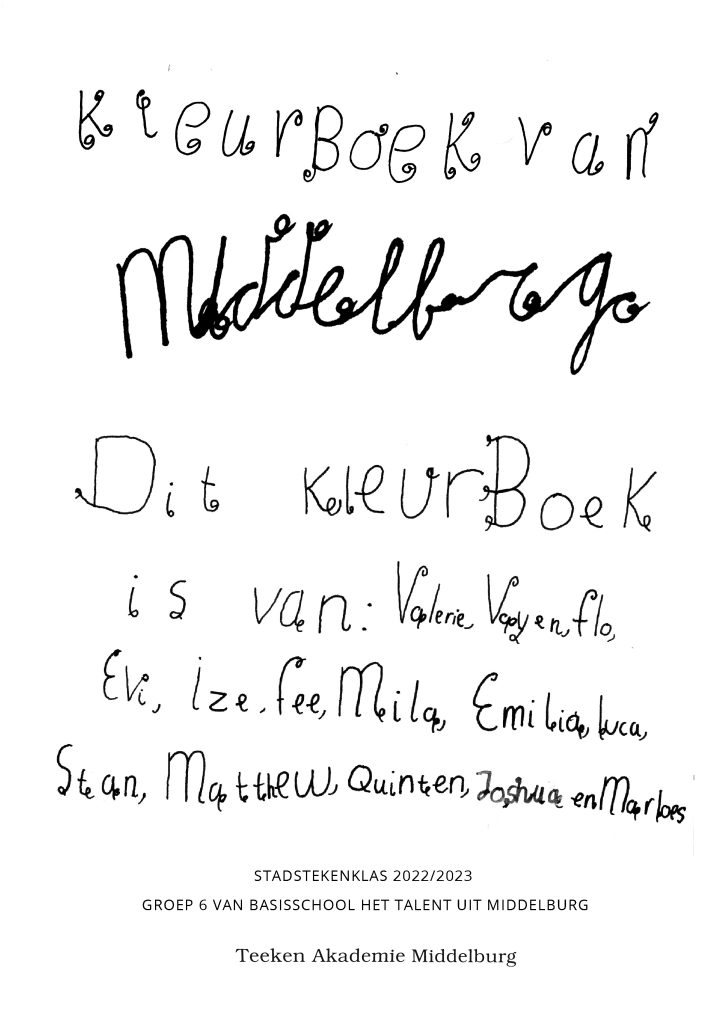 KleurBoek van
Middelburg
Dit KleurBoek
is van: Valerie, Vayen, flo,
Evi, ize, fee, Mila, Emilia, luca,
Stean, Matthew, Quinten, Joshua en Marloes
STADSTEKENKLAS 2022/2023
GROEP 6 VAN BASISSCHOOL HET TALENT UIT MIDDELBURG
Teeken Akademie Middelburg